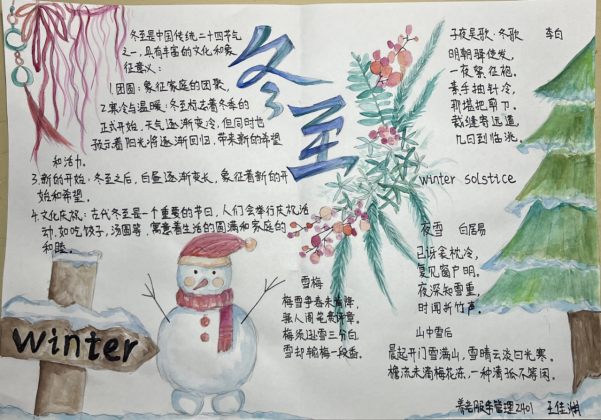 冬至
冬至是中国传统二十四节气
之一,具有丰富的文化和象
征意义:
1.团圆:象征家庭的团聚。
2.寒冷与温暖:冬至标志着冬季的
正式开始,天气逐渐变冷,但同时也
预示着阳光将逐渐回归,带来新的希望
和活力。
3.新的开始:冬至之后,白昼逐渐变长,象征着新的开
始和希望。
4.文化庆祝:古代冬至是一个重要的节日,人们会举行庆祝活
动,如吃饺子,汤圆等,寓意着生活的圆满和家庭的
和睦。
winter
子夜吴歌·冬歌 李白
明朝驿使发,
一夜絮征袍。
素手抽针冷,
那堪把剪刀。
裁缝寄远道,
几日到临洮。
winter solstice
夜雪 白居易
已讶衾枕冷,
复见窗户明。
夜深知雪重,
时闻折竹声。
雪梅
梅雪争春未肯降,
骚人阁笔费评章。
梅须逊雪三分白
雪却输梅一段香。
山中雪后
晨起开门雪满山,雪晴云淡日光寒。
檐流未滴梅花冻,一种清孤不等闲。
养老服务管理2401 王佳